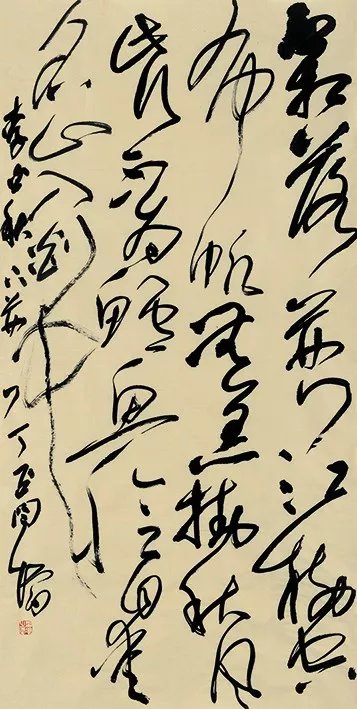 霜落荆门江樹空
布帆無恙掛秋风
此行不为鱸魚鱠自愛
名山入剡中
李白秋下荆门 丁酉